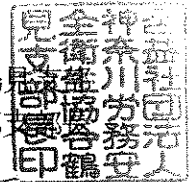 公益社団法人
神奈川労務安
全衛生協会鶴
見支部印